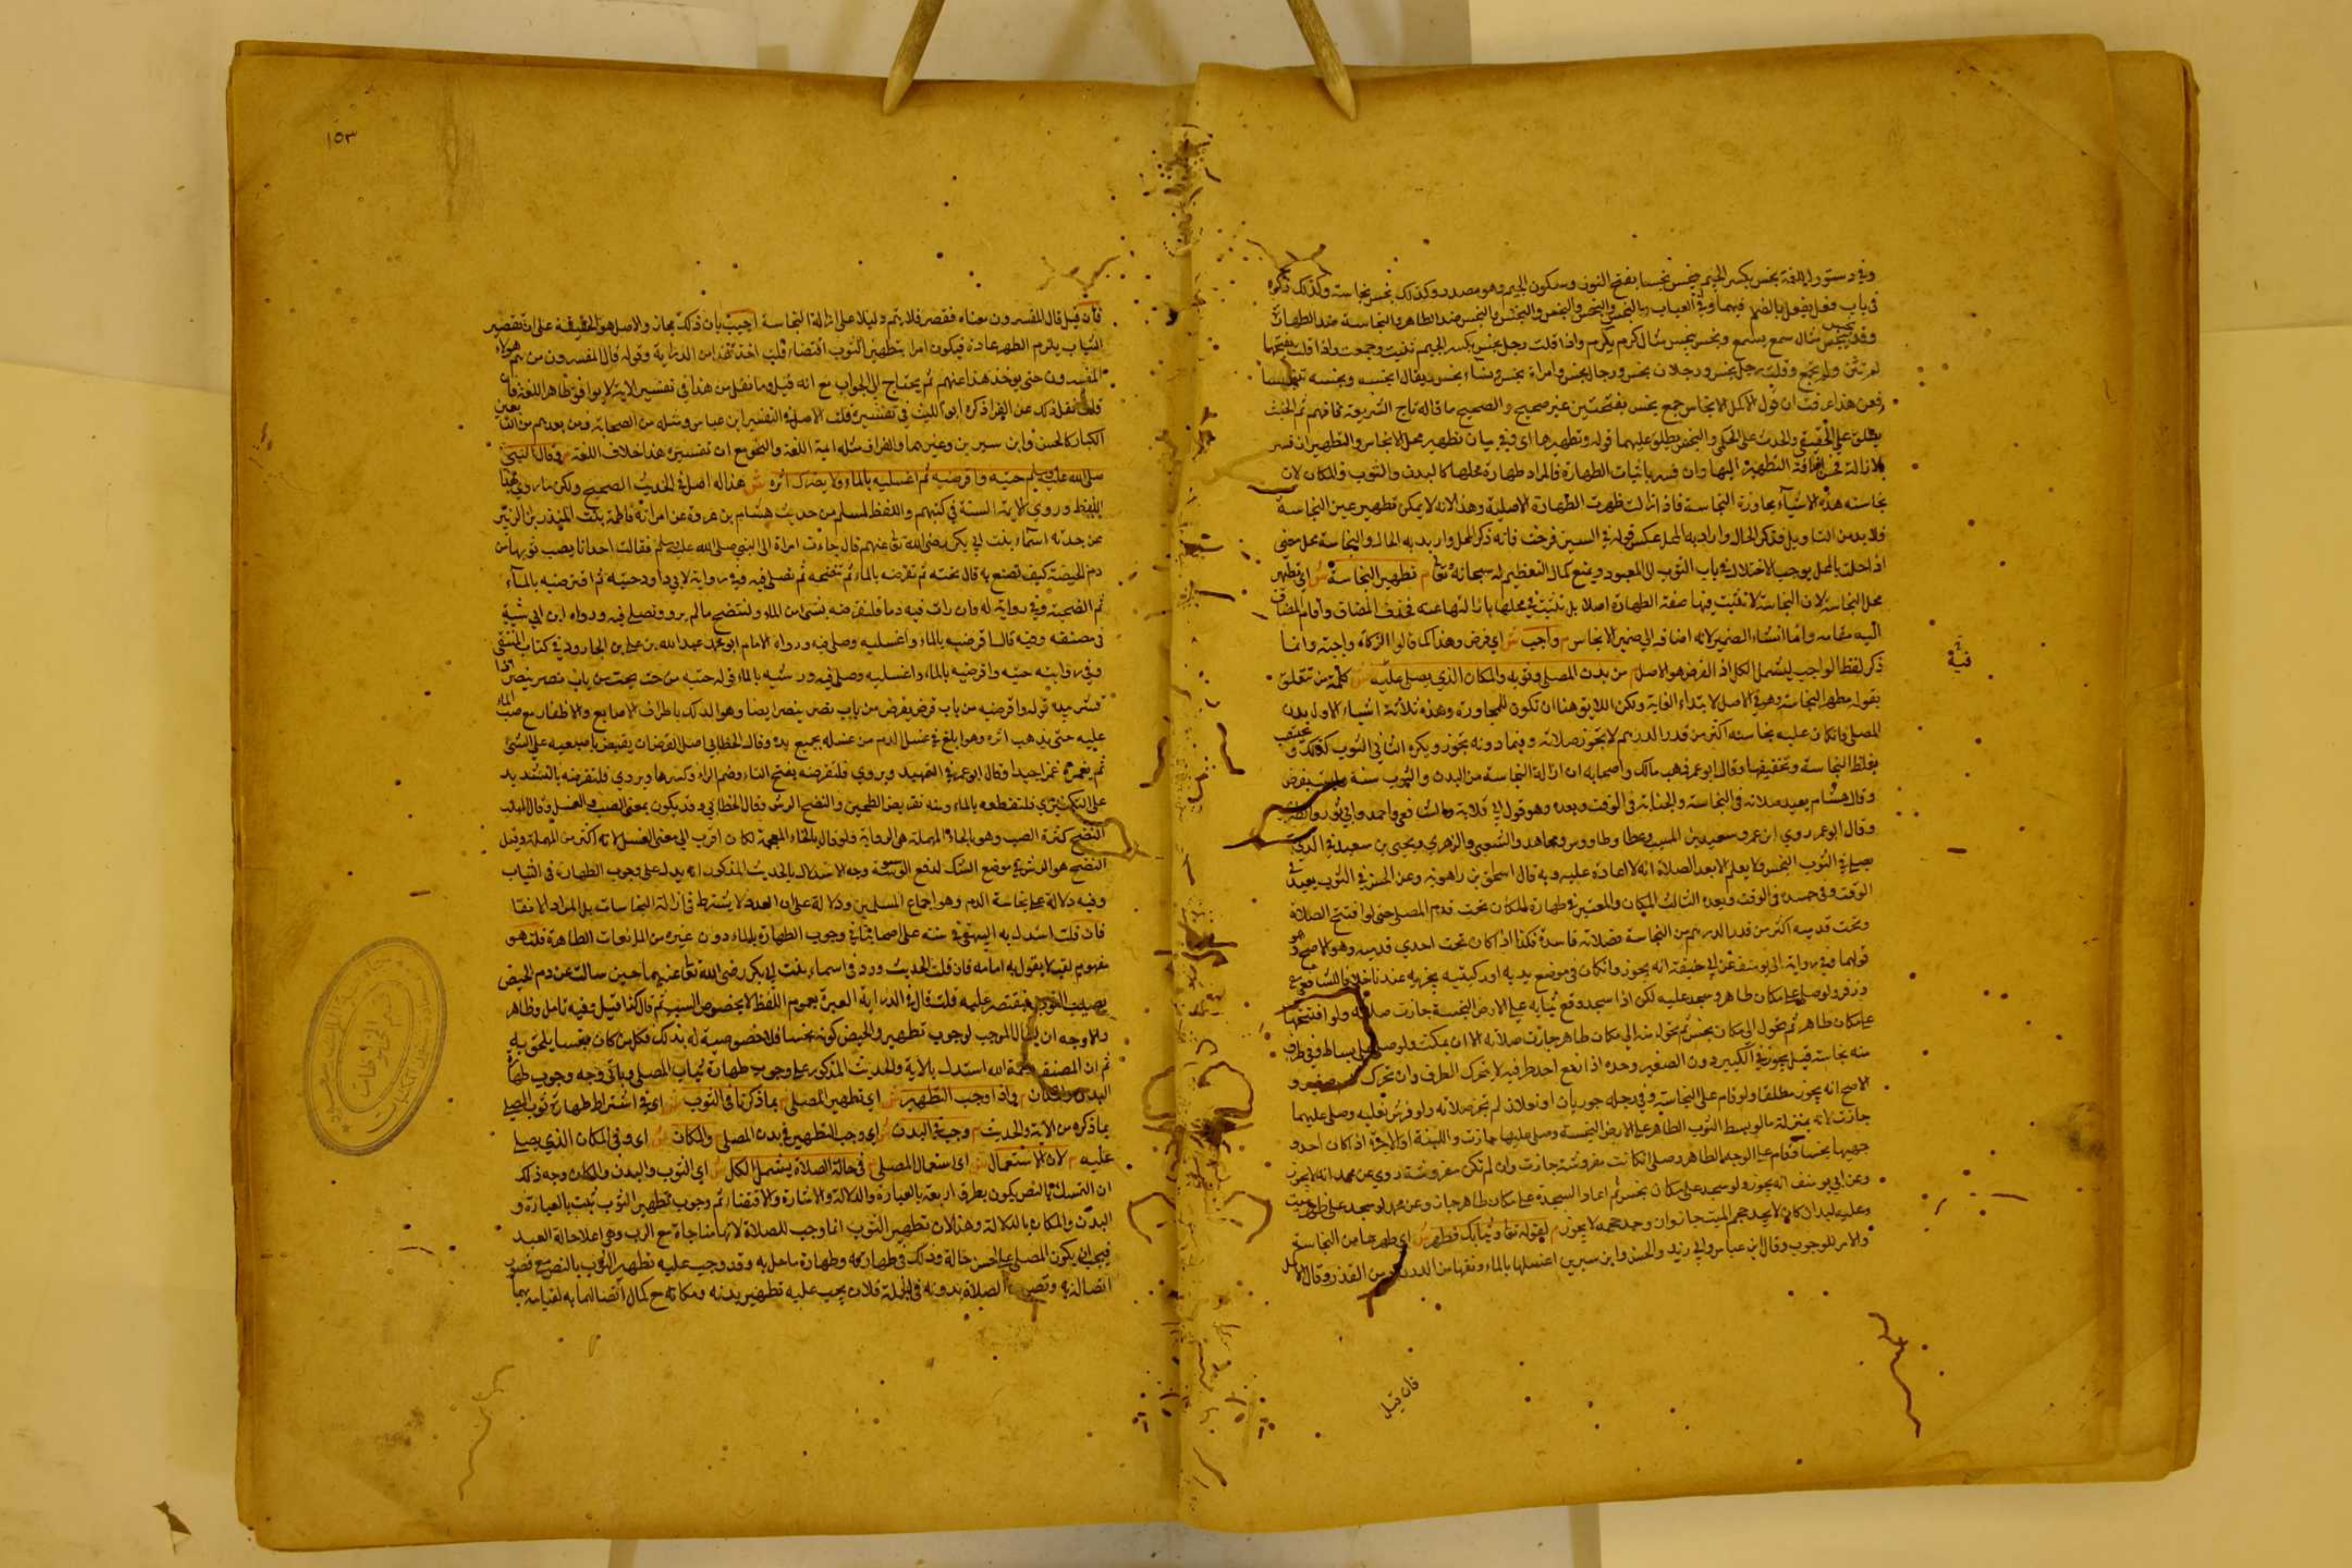 وفي دستور اللغة نجس بكسر الجيم ينجس نجسا بفتح النون وسكون الجيم وهو مصدر وكذلك نجس نجاسة وكذلك ذكره
في باب فعل يفعل بالضم فيهما وفي العباب النجس والنجس والنجس والنجس والنجس ضد الطاهر والنجاسة ضد الطهارة
وقد نجس ينجس مثال سمع يسمع ونجس ينجس مثال كرم يكرم واذا قلت رجل نجس بكسر الجيم ثنيت وجمعت واذا قلت بفتحها
لم تثن ولم تجمع وقلت رجل نجس ورجلان نجس ورجال نجس وامراة نجس ونساء نجس ويقال انجسه ونجسه تنجيسا
فعن هذا عرفت ان قول الاكمل الانجاس جمع نجس بفتحتين غير صحيح والصحيح ما قاله تاج الشريعة فافهم ثم الخبث
يطلق على الحقيقي والحدث على الحكمي والنجس يطلق عليهما قوله وتطهيرها اي وفي بيان تطهير محل الانجاس والتطهير ان فسر
بالازالة فحسن اضافة التطهير اليها وان فسر باثبات الطهارة فالمراد طهارة محلها كالبدن والثوب والمكان لان
نجاسة هذه الاشياء بمجاورة النجاسة فاذا زالت ظهرت الطهارة الاصلية وهذا لانه لا يمكن تطهير عين النجاسة
فلا بد من التاويل فذكر الحال واراد به المحل عكس قوله في السين فرخت فانه ذكر المحل واريد به الحال والنجاسة محل معنى
اذا حلت بالمحل يوجب الاختلال في باب التقرب الى المعبود ويمنع كمال التعظيم له سبحانه وتعالى م تطهير النجاسة ش اي تطهير
محل النجاسة لان النجاسة لا تثبت فيها صفة الطهارة اصلا بل تثبت في محلها بازالتها عنه فحذف المضاف واقام المضاف
اليه مقامه واما انشاء الضمير لانه اضافه الى ضمير الانجاس م واجب ش اي فرض وهذا كما قالوا الزكاة واجبة وانما
ذكر لفظ الواجب ليشمل الكل اذ الفرض هو الاصل م من بدن المصلي وثوبه والمكان الذي يصلي عليه ش كلمة من تتعلق
بقوله تطهير النجاسة وهو في الاصل لابتداء الغاية ولكن اللايق هنا ان تكون للمجاورة وهذه ثلاثة اشياء الاول بدن
المصلي فان كان عليه نجاسة اكثر من قدر الدرهم لا تجوز صلاته وفيما دونه تجوز ويكره الثاني الثوب كذلك و
بغلظ النجاسة وتخفيفها وقال ابو عمر ذهب مالك واصحابه ان ازالة النجاسة من البدن والثوب سنة وليست بفرض
وقال هشام يعيد صلاته في النجاسة والجنابة في الوقت وبعده وهو قول ابي قلابة والشافعي واحمد وابي ثور والطبري
وقال ابو عمر روي ابن عمر وسعيد بن المسيب وعطا وطاووس ومجاهد والشعبي والزهري ويحيى بن سعيد في الذي
يصلي في الثوب النجس ولا يعلم الا بعد الصلاة انه لا اعادة عليه وبه قال اسحق بن راهويه وعن الحسن في الثوب يعيد في
الوقت وفي جسده في الوقت وبعده الثالث المكان والمعتبر في طهارة المكان تحت قدم المصلي حتى لو افتتح الصلاة
وتحت قدميه اكثر من قدر الدرهم من النجاسة فصلاته فاسدة فكذا اذا كان تحت احدي قدميه وهو الاصح
قولهما وفي رواية ابي يوسف عن ابي حنيفة انه يجوز وان كان في موضع يديه او ركبتيه يجزيه عندنا خلافا للشافعي
وزفر ولو صلى على مكان طاهر وسجد عليه لكن اذا سجد وقع ثيابه على الارض النجسة جازت صلاته ولو افتتحها
على مكان طاهر ثم تحول الى مكان نجس ثم تحول منه الى مكان طاهر جازت صلاته الا ان يمكث ولو صلى على بساط وفي طرف
منه نجاسة قيل يجوز في الكبير دون الصغير وحده اذا رفع احد طرفيه لا يتحرك الطرف وان تحرك صغير و
الاصح انه يجوز مطلقا ولو قام على النجاسة وفي رجله جوربان او نعلان لم تجز صلاته ولو فرش نعليه وصلى عليهما
جازت لانه بمنزلة ما لو بسط الثوب الطاهر على الارض النجسة وصلى عليها جازت واللبنة او الاجرة اذا كان احد
جهيها نجسا فقام على الوجه الطاهر وصلى ان كانت مفروشة جازت وان لم تكن مفروشة روي عن محمد انه لا يجوز
وعن ابي يوسف انه يجوز ولو سجد على مكان نجس ثم اعاد السجدة على مكان طاهر جاز وعن محمد لو سجد على ظهر ميت
وعليه لبد ان كان لا يجد حجم الميت جاز وان وجد حجمه لا يجوز م لقوله تعالى وثيابك فطهر ش اي طهرها من النجاسة
والامر للوجوب وقال ابن عباس وابي زيد والحسن وابن سيرين اغسلها بالماء ونقها من الدرن من القذر وقال
فية
فان قيل
١٥٣
فان قيل قال المفسرون معناه فقصر فلا يتم دليلا على ازالة النجاسة اجيب بان ذلك مجاز والاصل هو الحقيقة على ان تقصير
الثياب يلزم الطهر عادة فيكون امرا بتطهير الثوب اقتضاء قلت اخذ هذا من الدراية وقوله قال المفسرون من هم هولاء
المفسرون حتى يوخذ هذا عنهم ثم يحتاج الى الجواب مع انه قيل وما نقل من هذا في تفسير الاية لا يوافق ظاهر اللغة فان
قلت نقل ذلك عن الفرا ذكره ابو الليث في تفسيره قلت الاصل في التفسير ابن عباس ومثله من الصحابة ومن بعدهم من التابعين
الكبار كالحسن وابن سيرين وغيرهما والفرا مثله ايمة اللغة والنحو مع ان تفسيره هذا خلاف اللغة م وقال النبي
صلى الله عليه وسلم حتيه واقرضيه ثم اغسليه بالماء ولا يضرك اثره ش هذا له اصل في الحديث الصحيح ولكن ما روي بهذا
اللفظ وروي الايمة الستة في كتبهم واللفظ لمسلم من حديث هشام بن عروة عن امراته فاطمة بنت المنذر بن الزبير
عن جدته اسماء بنت ابي بكر رضي الله تعالى عنهم قال جاءت امراة الى النبي صلى الله عليه وسلم فقالت احدانا يصيب ثوبها من
دم الحيضة كيف تصنع به قال تحته ثم تقرضه بالماء ثم تنضحه ثم تصلي فيه وفي رواية لابي داود حتيه ثم اقرضيه بالماء
ثم انضحيه وفي رواية له فان رات فيه دما فلتقرضه بشي من الماء ولتنضح ما لم تر وتصلي فيه ورواه ابن ابي شيبة
في مصنفه وفيه قال اقرضيه بالماء واغسليه وصلي فيه ورواه الامام ابو محمد عبد الله بن علي بن الجارود في كتاب المنتقى
وفي روايته حتيه واقرضيه بالماء واغسليه وصلي فيه ورشيه بالماء قوله حتيه من حت يحت من باب نصر ينصر اذا
قشرتيه قوله واقرضيه من باب قرض يقرض من باب نصر ينصر ايضا وهو الدلك باطراف الاصابع والاظفار مع صب الماء
عليه حتى يذهب اثره وهو ابلغ في غسل الدم من غسله بجميع يده وقال الخطابي اصل القرض ان يقبض باصبعيه على الشي
ثم يغمره غمزا جيدا وقال ابو عمر في التمهيد ويروي فلتقرضه بفتح التاء وضم الراء وكسرها ويروي فلتقرضه بالتشديد
على التكثير اي فلتقطعه بالماء ومنه تقريض العجين والنضح الرش وقال الخطابي وقد يكون بمعنى الصب والغسل وقال المهلب
النضح كثرة الصب وهو بالحاء المهملة هي الرواية ولو قال بالخاء المعجمة لكان اقرب الى معنى الغسل لانه اكثر من المهملة وقيل
النضح هو الرش في موضع الشك لدفع الوسوسة وجه الاستدلال بالحديث المذكور انه يدل على وجوب الطهارة في الثياب
وفيه دلالة على نجاسة الدم وهو اجماع المسلمين ودلالة على ان العدد لا يشترط في ازالة النجاسات بل المراد الانقا
فان قلت استدل به البيهقي في سننه على اصحابنا في وجوب الطهارة بالماء دون غيره من المايعات الطاهرة قلت هو
مفهوم لقب لا يقول به امامه فان قلت الحديث ورد في اسماء بنت ابي بكر رضي الله تعالى عنهما حين سالت عن دم الحيض
يصيب الثوب فيقتصر عليه قلت قال في الدراية العبرة بعموم اللفظ لا بخصوص السبب ثم قال كذا قيل وفيه تامل وظاهر
والاوجه ان يقال الموجب لوجوب تطهير دم الحيض كونه نجسا فلا خصوصية له بذلك فكل من كان نجسا يلحق به
ثم ان المصنف رحمه الله استدل بالاية والحديث المذكور على وجوب طهارة ثياب المصلي وباقي وجه وجوب طهارة
البدن والمكان م واذا وجب التطهير ش اي تطهير المصلي م بما ذكرنا في الثوب ش اي في اشتراط طهارة ثوب المصلي
بما ذكره من الاية والحديث م وجب في البدن ش اي وجب التطهير في بدن المصلي م والمكان ش اي وفي المكان الذي يصلي
عليه م لان الاستعمال ش اي استعمال المصلي م في حالة الصلاة يشمل الكل ش اي الثوب والبدن والمكان وجه ذلك
ان التمسك بالنص يكون بطرق اربعة بالعبارة والدلالة والاشارة والاقتضاء ثم وجوب تطهير الثوب ثبت بالعبارة و
البدن والمكان بالدلالة وهذا لان تطهير الثوب انما وجب للصلاة لانها مناجاة مع الرب وهي اعلا حالة العبد
فيجب ان يكون المصلي على احسن حالة وذلك في طهارته وطهارة ما حل به وقد وجب عليه تطهير الثوب بالنص مع قصور
اتصاله به وتصور الصلاة بدونه في الجملة فلان يجب عليه تطهير بدنه ومكانه مع كمال اتصالهما به لقيامه بهما